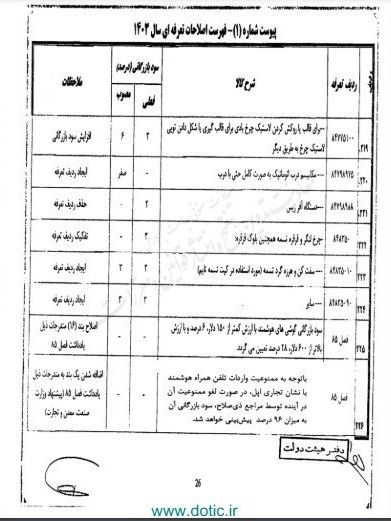 پیوست شماره (۱) - فهرست اصلاحات تعرفه ای سال ۱۴۰۳
ردیف تعرفه
شرح کالا
سود بازرگانی (درصد)
فعلی
مصوب
ملاحظات
۲۱۹.
۸۴۷۷۵۱۰۰
--برای قالب یا روکش کردن لاستیک چرخ بادی برای قالب گیری یا شکل دادن تویی
لاستیک چرخ به طریق دیگر
۲
۶
افزایش سود بازرگانی
۲۲۰.
۸۴۷۹۸۹۷۵
---مکانیسم درب اتوماتیک به صورت کامل حتی با درب
-
صفر
ایجاد ردیف تعرفه
۲۲۱
۸۴۷۹۸۹۸۸
---دستگاه
۲
۰
حذف ردیف تعرفه
۲۲۲
۸۴۸۳۵۰
-چرخ لنگر و قرقره تسمه همچنین بلوک قرقره:
۲
۰
تفکیک ردیف تعرفه
۲۲۳
۸۴۸۳۵۰۱۰
--- سفت کن و هرزه گرد تسمه (مورد استفاده در کیت تسمه تایم)
۲
۲
ایجاد ردیف تعرفه
۲۲۴
۸۴۸۳۵۰۹۰
--- سایر
۲
۲
ایجاد ردیف تعرفه
۲۲۵
فصل ۸۵
سود بازرگانی گوشی های هوشمند با ارزش کمتر از ۱۵۰ دلار، ۶ درصد و با ارزش
بالاتر از ۶۰۰ دلار، ۲۸ درصد تعیین می گردد.
اصلاح بند (۱۶) مندرجات ذیل
یادداشت فصل ۸۵
۲۲۶
فصل ۸۵
باتوجه به ممنوعیت واردات تلفن همراه هوشمند
با نشان تجاری اپل، در صورت لغو ممنوعیت آن
در آینده توسط مراجع ذی‌صلاح، سود بازرگانی آن
به میزان ۹۶ درصد پیش‌بینی خواهد شد.
اضافه شدن یک بند به مندرجات ذیل
یادداشت فصل ۸۵ (پیشنهاد وزارت
صنعت، معدن و تجارت)
دفتر هیئت دولت
26
www.dotic.ir